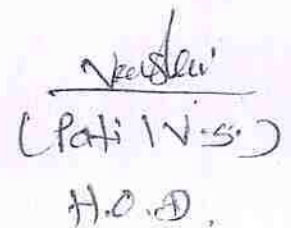 (Patil V.S.)
H.O.D.